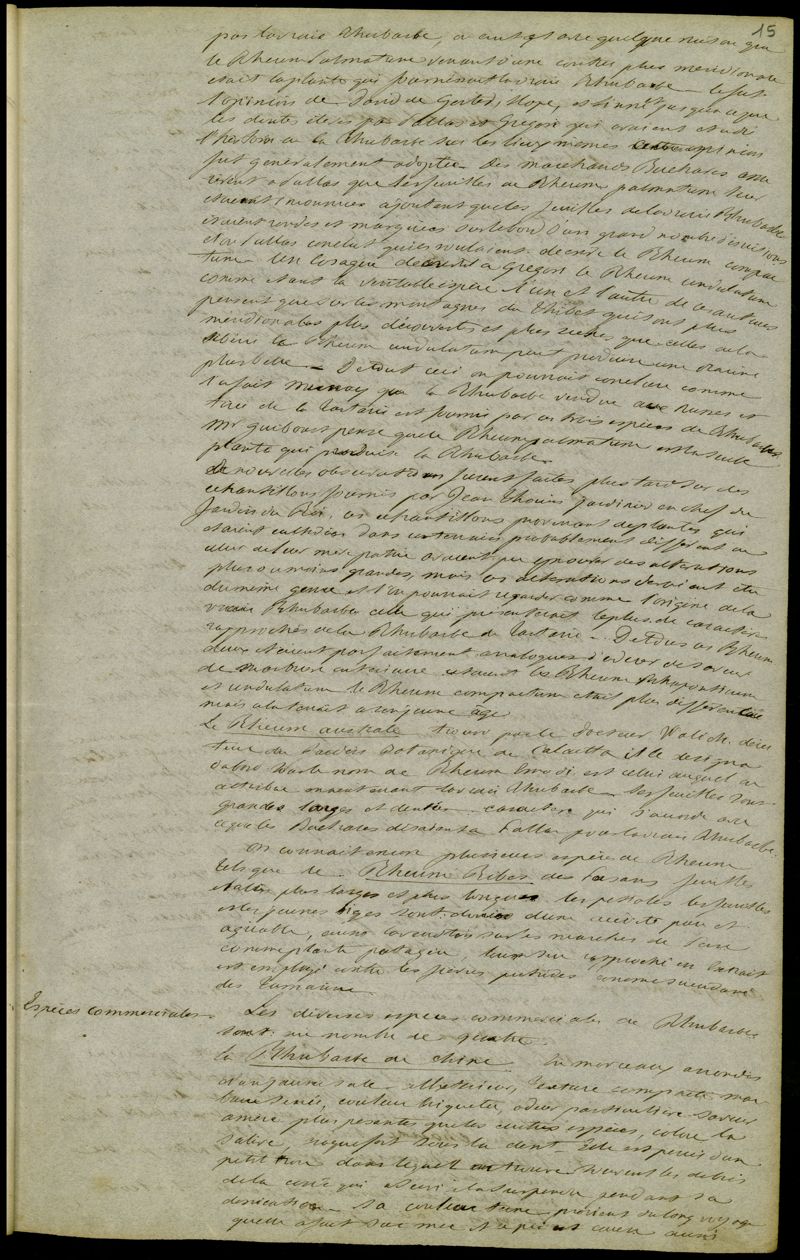 15
pas la vraie Rhubarbe, on eut quelque raison que
le Rheum Palmatum venant d'une contrée plus meridionale
etait la plante qui fournissait la vraie Rhubarbe – ce fut
l'opinion de David de Gorter, Hope, et ce n'est pas que
les doutes élevés par Pallas et Georgi qui avaient etudié
l'histoire de la Rhubarbe sur les lieux memes cette opinion
fut généralement adoptée. Des marchands Buchares assu
rèrent a Pallas que les feuilles du Rheum palmatum leur
etaient inconnues ajoutant que les feuilles de la vraie Rhubarbe
etaient rondes et marquées sur le bord d'un grand nombre d'incisions
et Pallas conclut qu'ils voulaient decrire le Rheum compac
tum. Un Cosaque a Georgi le Rheum undulatum
comme etant la veritable espèce. L'un et l'autre de ces auteurs
pensent que sur les montagnes du Thibet qui sont plus
meridionales plus découvertes et plus seches que celles de la
Siberie le Rheum undulatum peut produire une racine
plus belle – De tout ceci on pourrait conclure comme
l'a fait Murray que la Rhubarbe vendue aux Russes et
tirée de la Tartarie est fournie par ces trois espèces de Rhubarbes
Mr Guibourt pense que le Rheum palmatum est la seule
plante qui produise la Rhubarbe.
De nouvelles observations furent faites plus tard sur des
echantillons fournis par Jean Thouin jardinier en chef du
Jardin du Roi, ces echantillons provenant de plantes qui
etaient cultivées dans un terrain probablement different de
celui de leur mere patrie avaient pu eprouver des alterations
plus ou moins grandes, mais ces alterations devaient etre
du même genre et l'on pouvait regarder comme l'origine de la
vraie Rhubarbe celle qui présenterait le plus de caractères
rapprochés de la Rhubarbe de Tartarie – De tous ces Rheum
deux etaient parfaitement analogues d'odeur de saveur
de marbrure interieure c'etaient les Rheum Rhaponticum
et undulatum le Rheum compactum etait plus different
mais cela tenait a son jeune âge
Le Rheum australe trouvé par le docteur Walich direc
teur du Jardin Botanique de Calcutta et le designa
d'abord sous le nom de Rheum Emodi, est celui auquel on
attribue maintenant la vraie Rhubarbe – les feuilles sont
grandes larges et dentées caractère qui s'accorde avec
ce que les Buchares disaient a Pallas pour la vraie Rhubarbe.
On connait encore plusieurs espèces de Rheum
tels que le Rheum Ribes des Persans feuilles
etalées plus larges et plus longues les petioles les feuilles
et les jeunes tiges sont douées d'une acidité pure et
agréable, aussi la vend on sur les marches de Perse
comme plante potagère, leur suc rapproché en Extrait
est employé contre les fièvres putrides comme succedané
des Tamarins
Espèces Commerciales
Les diverses espèces commerciales de Rhubarbes
sont au nombre de quatre
la Rhubarbe de chine En morceaux arrondis
d'un jaune sale a l'exterieur, Texture compacte mar
brure serrée, couleur briquetée, odeur particulière saveur
amere plus pesante que les autres espèces, colore la
salive, croquefort sous la dent – Elle est percée d'un
petit trou dans lequel on trouve souvent les débris
de la corde qui a servi a la suspendre pendant sa
dessication – Sa couleur terne provient du long voyage
qu'elle a fait sur mer